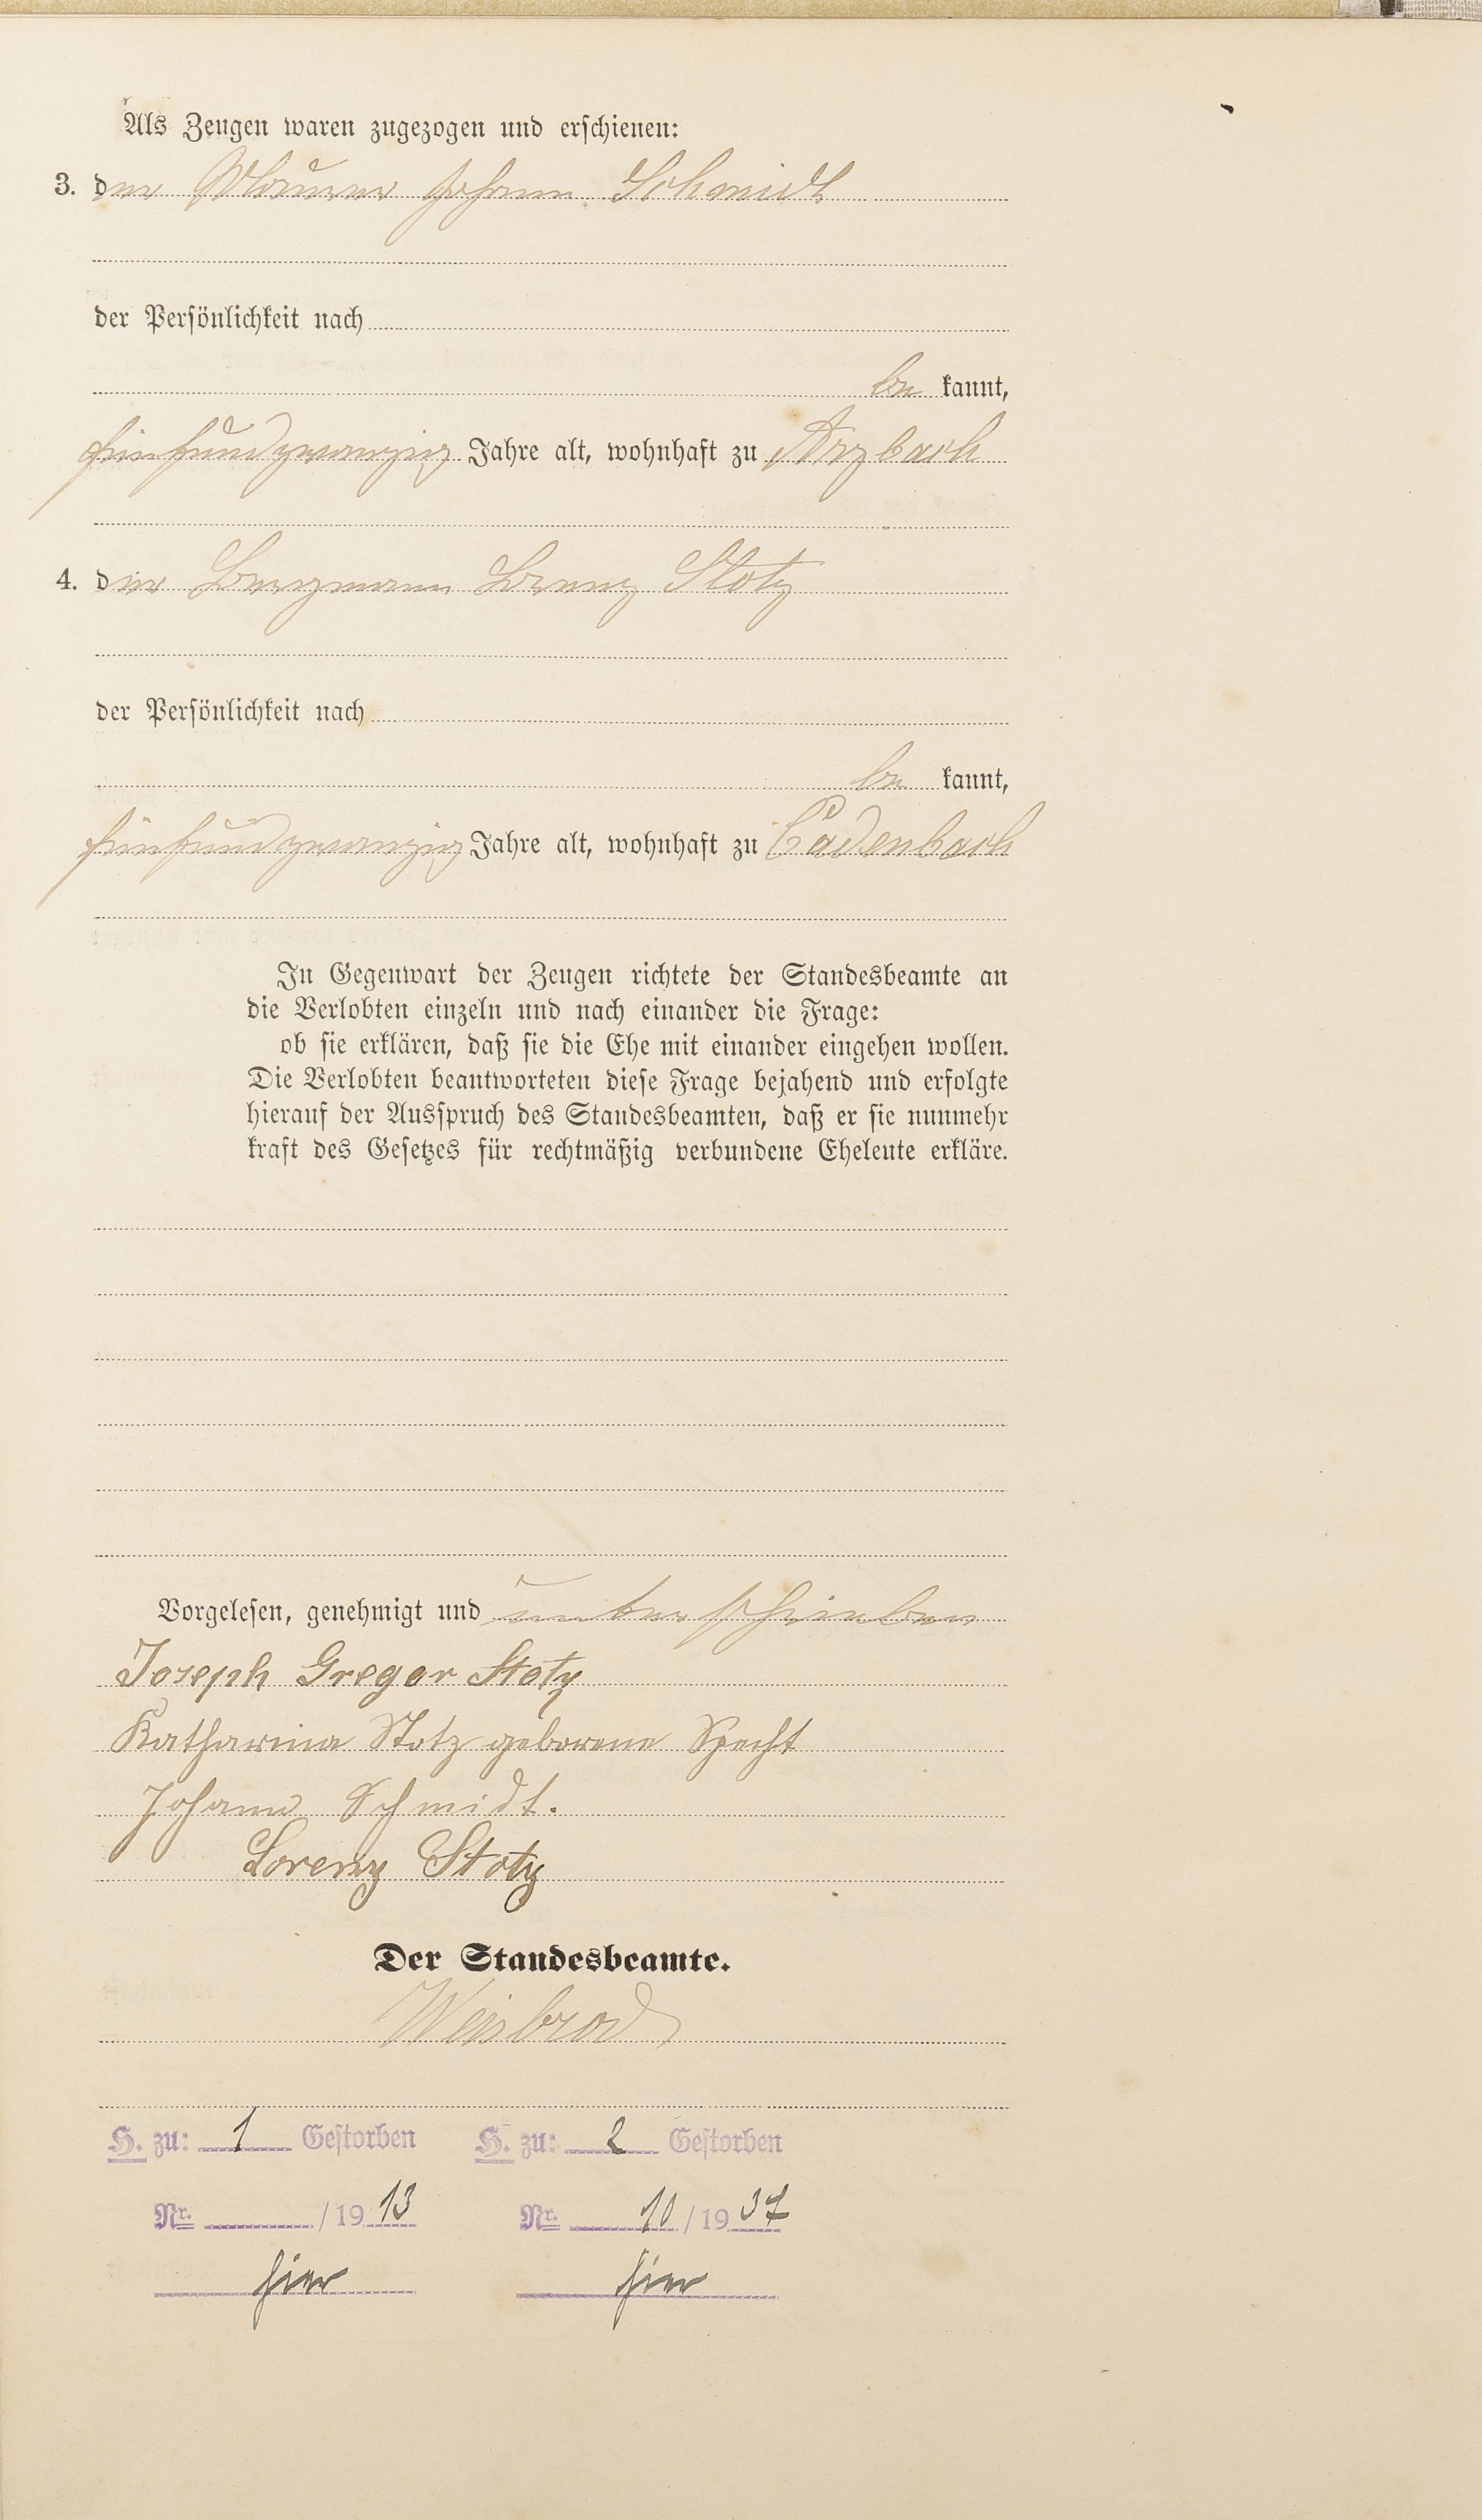 Als Zeugen waren zugezogen und erschienen:
3. der Maurer Johann Schmidt
der Persönlichkeit nach
be kannt,
fünfundzwanzig Jahre alt, wohnhaft zu Arzbach
4. der Bergmann Lorenz Stotz
der Persönlichkeit nach
be kannt,
fünfundzwanzig Jahre alt, wohnhaft zu Cadenbach
In Gegenwart der Zeugen richtete der Standesbeamte an
die Verlobten einzeln und nach einander die Frage:
ob sie erklären, daß sie die Ehe mit einander eingehen wollen.
Die Verlobten beantworteten diese Frage bejahend und erfolgte
hierauf der Ausspruch des Standesbeamten, daß er sie nunmehr
kraft des Gesetzes für rechtmäßig verbundene Eheleute erkläre.
Vorgelesen, genehmigt und unterschrieben
Joseph Gregor Stotz
Katharina Stotz geborene Specht
Johann Schmidt.
Lorenz Stotz
Der Standesbeamte.
Weisbrod
H. zu: 1 Gestorben H. zu: 2 Gestorben
Nr. /1913 Nr. 10/1937
hier hier